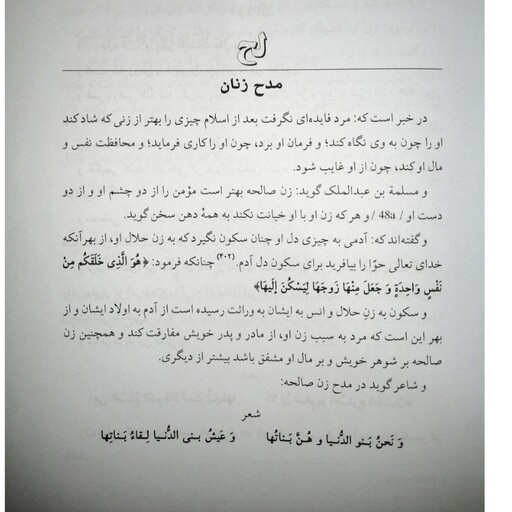 لح
مدح زنان
در خبر است که: مرد فایده‌ای نگرفت بعد از اسلام چیزی را بهتر از زنی که شاد کند
او را چون به وی نگاه کند؛ و فرمان او برد، چون او را کاری فرماید؛ و محافظت نفس و
مال او کند، چون از او غایب شود.
و مسلمة بن عبدالملک گوید: زن صالحه بهتر است مؤمن را از دو چشم او و از دو
دست او / 48a / و هر که زن او با او خیانت نکند به همهٔ دهن سخن گوید.
و گفته‌اند که: آدمی به چیزی دل او چنان سکون نگیرد که به زن حلال او، از بهر آنکه
خدای تعالی حوّا را بیافرید برای سکون دل آدم. (۴۰۲) چنانکه فرمود: ﴿هُوَ الَّذِی خَلَقَکُم مِنْ
نَفْسٍ وَاحِدَةٍ وَ جَعَلَ مِنْهَا زَوجَهَا لِیَسْکُنَ إلَیهَا﴾
و سکون به زنِ حلال و انس به ایشان به وراثت رسیده است از آدم به اولاد ایشان و از
بهر این است که مرد به سبب زن او، از مادر و پدر خویش مفارقت کند و همچنین زن
صالحه بر شوهر خویش و بر مال او مشفق باشد بیشتر از دیگری.
و شاعر گوید در مدح زن صالحه:
شعر
وَ نَحنُ بَنو الدُّنیا و هُنَّ بَناتُها وَ عَیشُ بنی الدُّنیا لِقاءُ بَناتِها